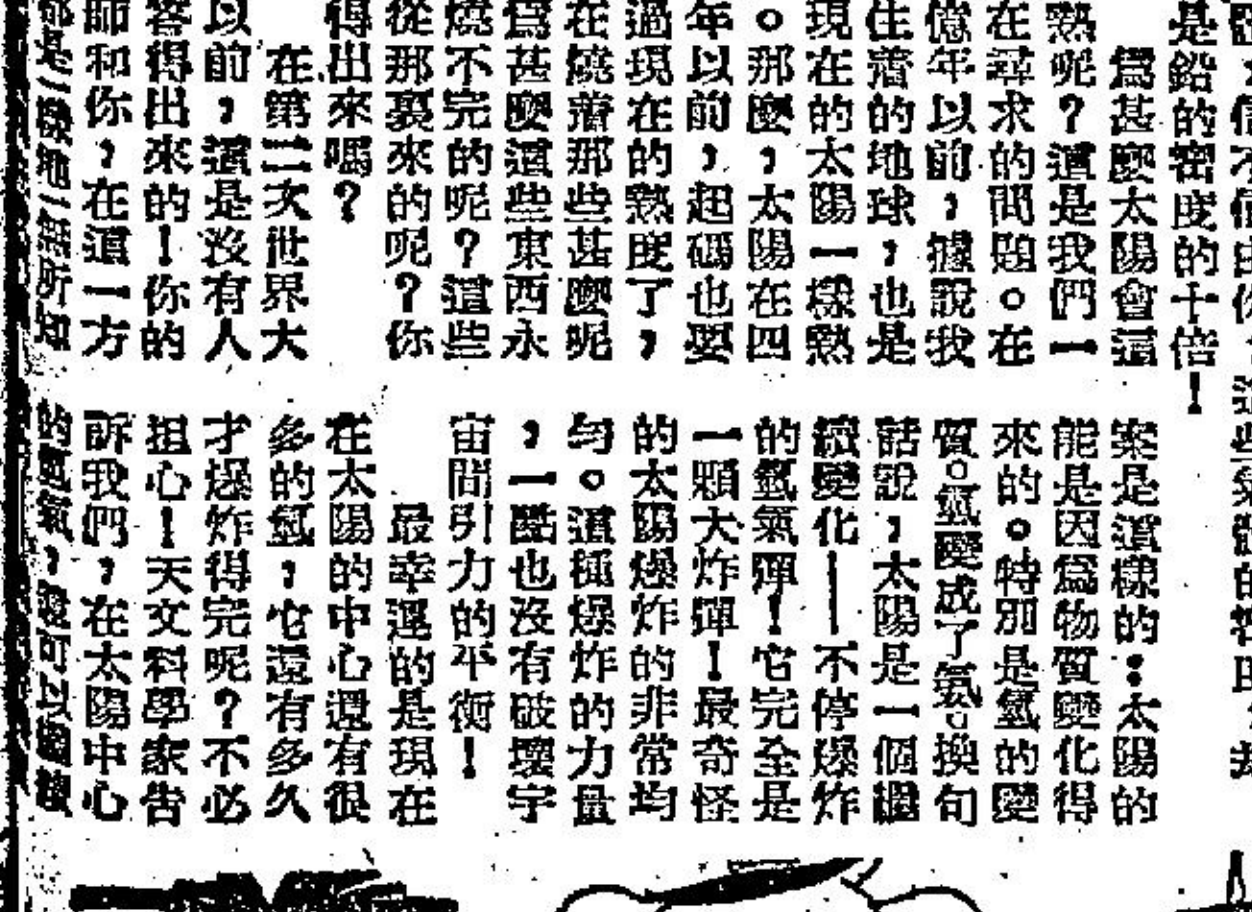 是鉛的密度的十倍！
爲甚麼太陽會這
熱呢？這是我們一
在尋求的問題。在
億年以前，據說我
住着的地球，也是
現在的太陽一樣熱
。那麼，太陽在四
年以前，起碼也要
過現在的熱度了，
在燒着那些甚麼呢
爲甚麼這些東西永
燒不完的呢？這些
從那裏來的呢？你
得出來嗎？
在第二次世界大
以前，這是沒有人
答得出來的！你的
師和你，在這一方
都是一樣地一無所知
案是這樣的：太陽的
能是因爲物質變化得
來的。特別是氫的變
質。氫變成了氦。換句
話說，太陽是一個繼
續變化——不停爆炸
的氫氣彈！它完全是
一顆大炸彈！最奇怪
的太陽爆炸的非常均
勻。這種爆炸的力量
，一點也沒有破壞宇
宙間引力的平衡！
最幸運的是現在
在太陽的中心還有很
多的氫，它還有多久
才爆炸得完呢？不必
担心！天文科學家告
訴我們，在太陽中心
的氫氣，還可以繼續